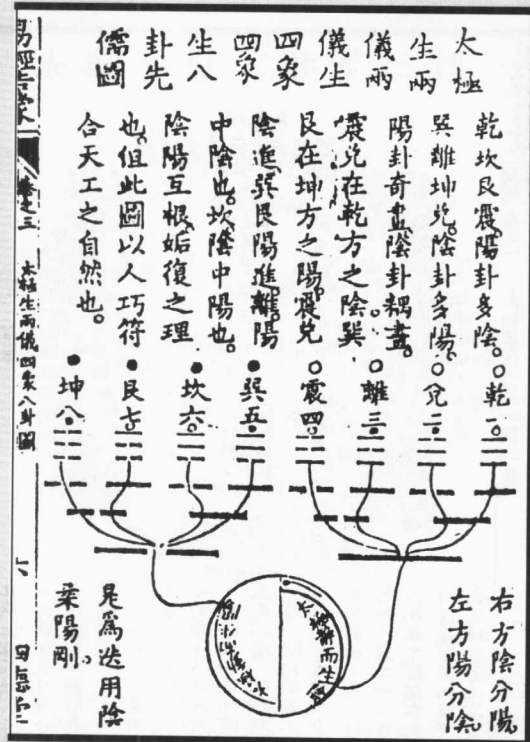 太極
生兩
儀兩
儀生
四象
四象
生八
卦先
儒圖
乾坎艮震。陽卦多陰。
巽離坤兌。陰卦多陽。
陽卦奇畫。陰卦耦畫。
震兌在乾方之陰。巽
艮在坤方之陽。震兌
陰進。巽艮陽進。離陽
中陰也。坎陰中陽也。
陰陽互根。姤復之理
也。但此圖以人巧符
合天工之自然也。
乾一
兌二
離三
震四
巽五
坎六
艮七
坤八
右方陰分陽
左方陽分陰。
太 靜而生陰
是爲迭用陰
柔陽剛。
易經 蒙
卷之三
太極生兩儀四象八卦圖